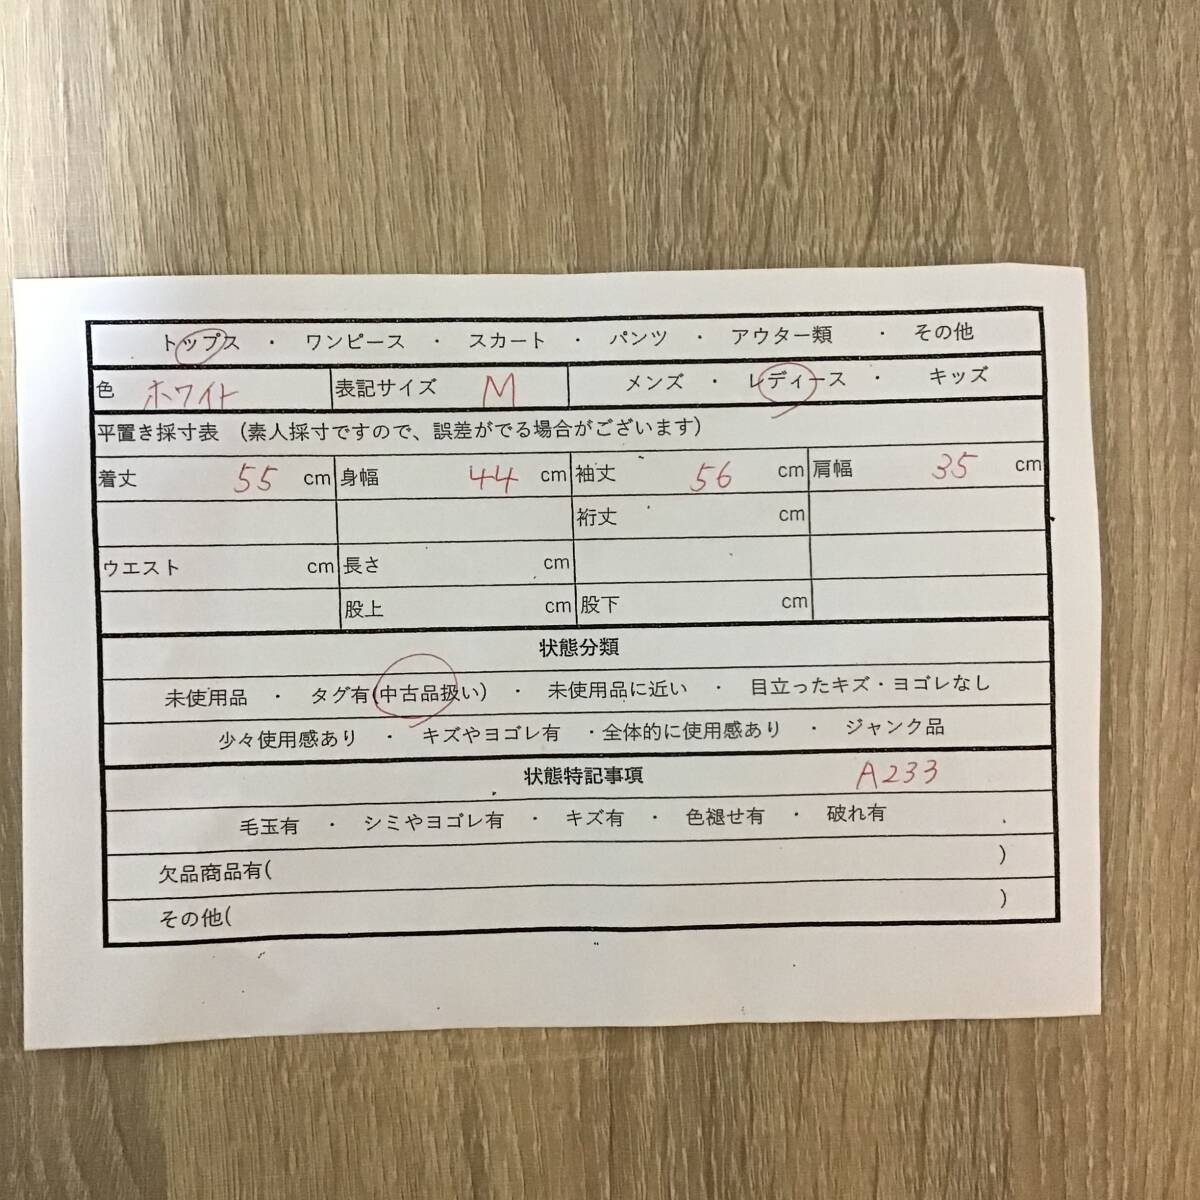 トップス ・ ワンピース ・ スカート ・ パンツ ・ アウター類 ・ その他
色 ホワイト 表記サイズ M メンズ ・ レディース ・ キッズ
平置き採寸表 (素人採寸ですので、誤差がでる場合がございます)
着丈 55 cm 身幅 44 cm 袖丈 56 cm 肩幅 35 cm
裄丈 cm
ウエスト cm 長さ cm
股上 cm 股下 cm
状態分類
未使用品 ・ タグ有(中古品扱い) ・ 未使用品に近い ・ 目立ったキズ・ヨゴレなし
少々使用感あり ・ キズやヨゴレ有 ・全体的に使用感あり ・ ジャンク品
状態特記事項 A233
毛玉有 ・ シミやヨゴレ有 ・ キズ有 ・ 色褪せ有 ・ 破れ有
欠品商品有( )
その他( )